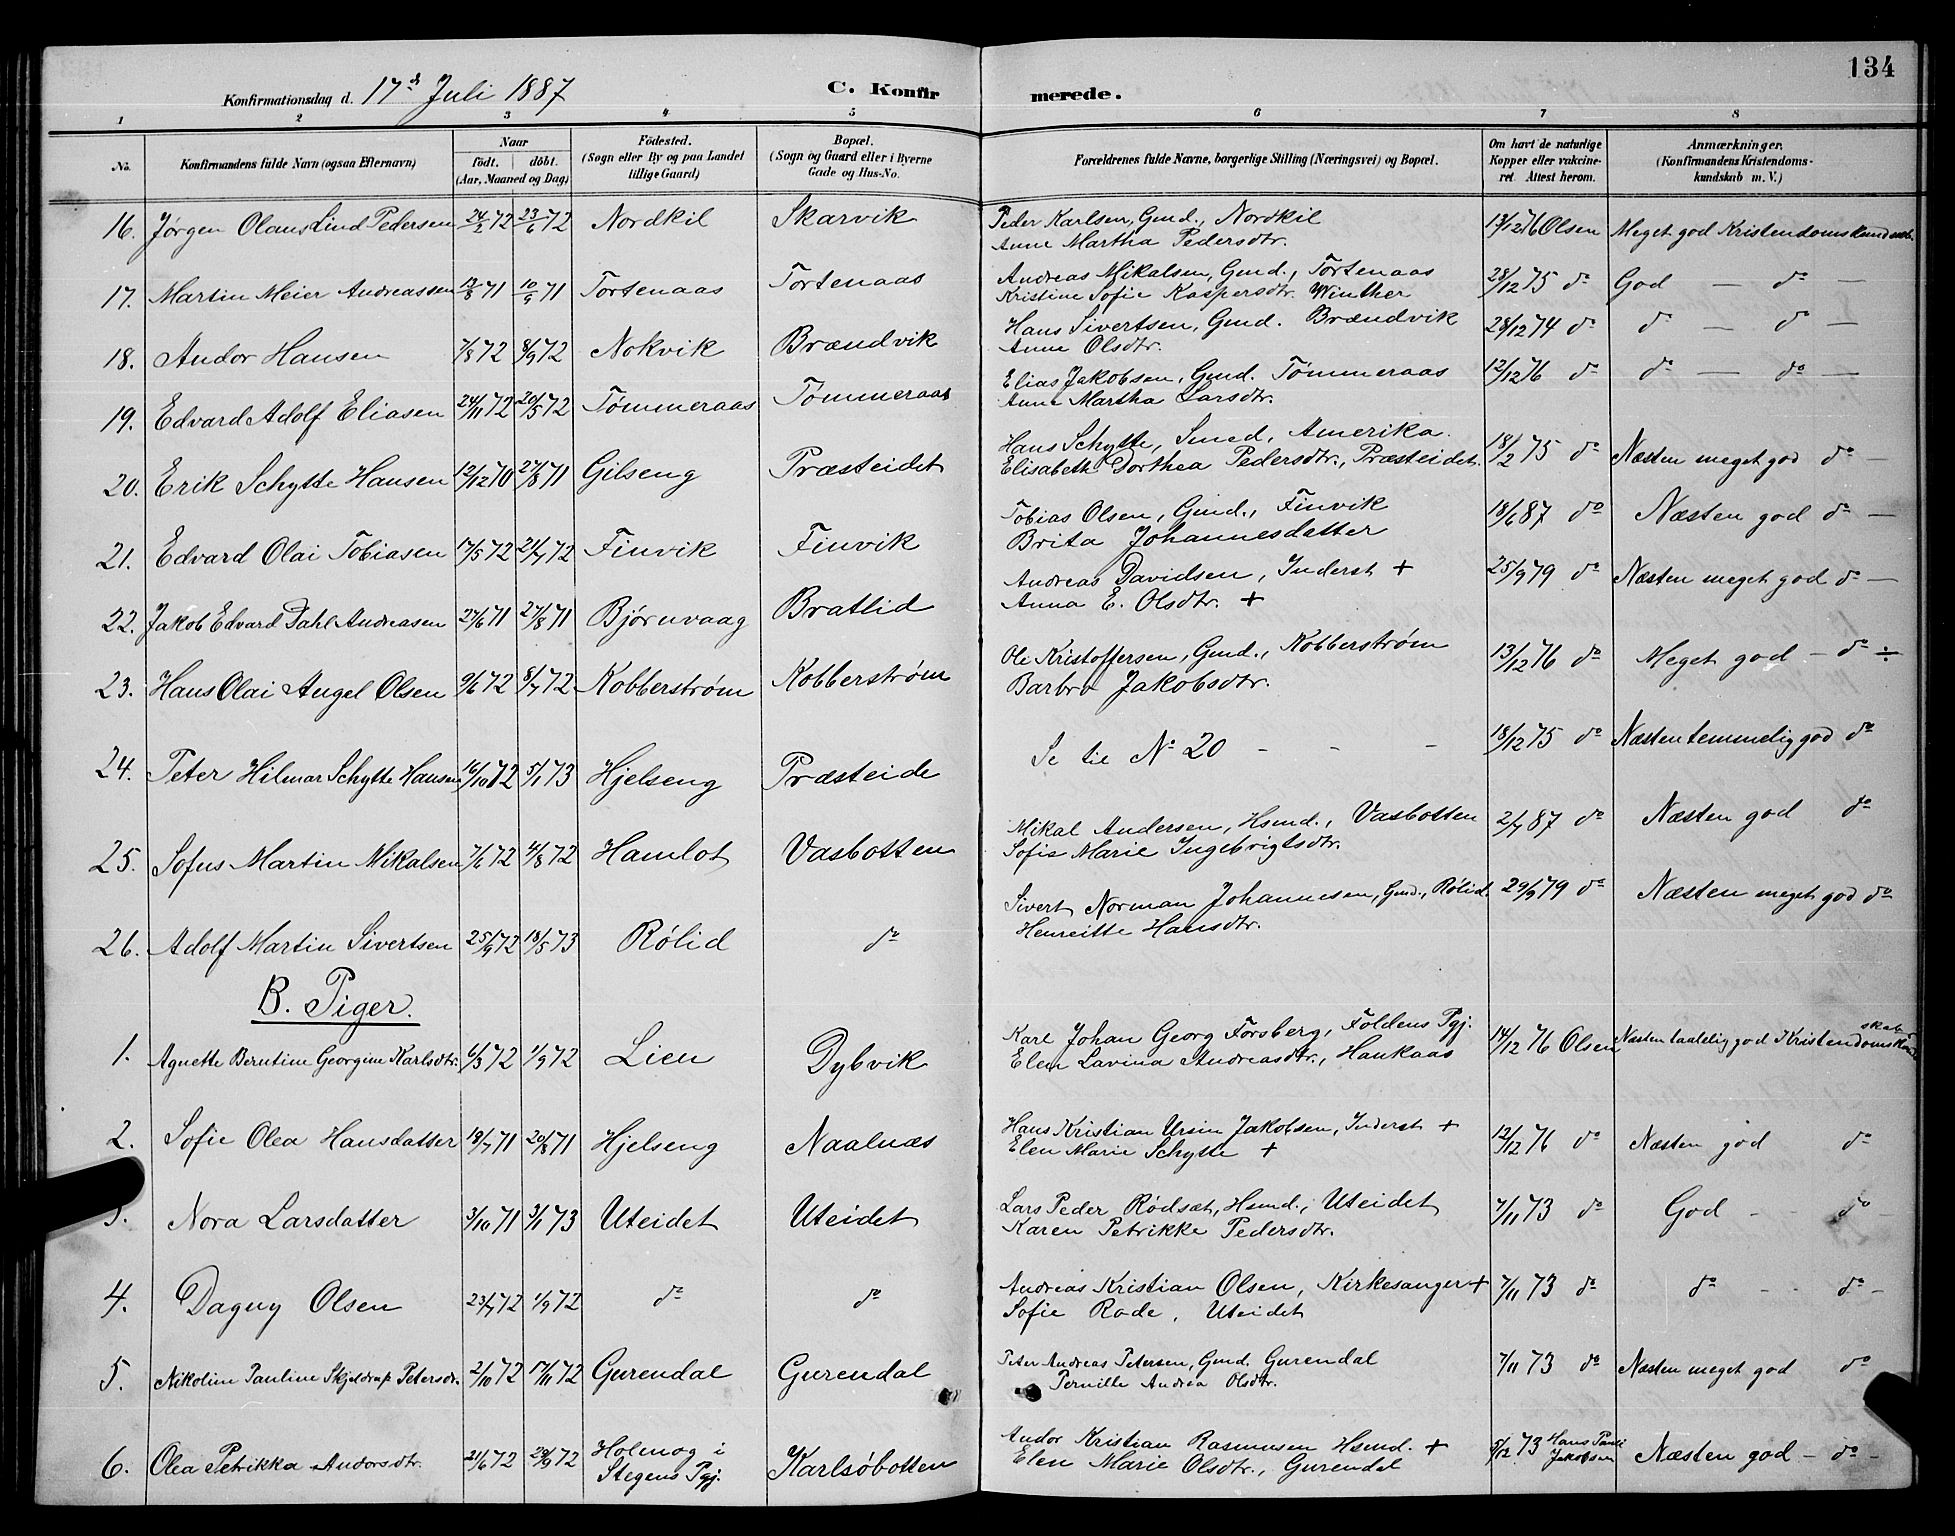 134
Konfirmationsdag d. 17de Juli 1887 C. Konfirmerede.
1 2 3 4 5 6 7 8
No. Konfirmandens fulde Navn (ogsaa Efternavn) Naar født. døbt. (Aar, Maaned og Dag) Födested. (Sogn eller By og paa Landet tillige Gaard) Bopæl. (Sogn og Gaard eller i Byerne Gade og Hus-No. Forældrenes fulde Navne, borgerlige Stilling (Næringsvei) og Bopæl. Om havt de naturlige Kopper eller vakcineret. Attest herom. Anmærkninger. (Konfirmandens Kristendomskundskab m. V.)
16. Jørgen Olaus Lind Pedersen 24/2 72 23/6 72 Nordkil Skarvik Peder Karlsen, Gmd., Nordkil 13/12 76 Olsen Meget god Kristendomskundsk.
Anne Martha Pedersdtr.
17. Martin Meier Andreassen 13/8 71 10/9 71 Tortenaas Tortenaas Andreas Mikalsen, Gmd., Tortenaas 28/12 75 do God — do —
Kristine Sofie Kaspersdtr. Winther
18. Andor Hansen 7/8 72 8/9 72 Nokvik Brændvik Hans Sivertsen, Gmd. Brændvik 28/12 74 do do — do —
Anne Olsdtr.
19. Edvard Adolf Eliasen 24/11 72 20/5 72 Tømmeraas Tømmeraas Elias Jakobsen, Gmd. Tømmeraas 12/12 76 do do — do —
Anne Martha Larsdtr.
20. Erik Schytte Hansen 12/12 70 27/8 71 Gilseng Præsteidet Hans Schytte, Smed, Amerika. 18/2 75 do Næsten meget god do —
Elisabeth Dorthea Pedersdtr., Præsteidet.
21. Edvard Olai Tobiasen 17/5 72 21/7 72 Finvik Finvik Tobias Olsen, Gmd., Finvik 18/6 87 do Næsten god do —
Brita Johannesdatter
22. Jakob Edvard Dahl Andreasen 27/6 71 27/8 71 Bjørnvaag Bratlid Andreas Davidsen, Inderst + 25/9 79 do Næsten meget god do —
Anna E. Olsdtr. +
23. Hans Olai Angel Olsen 9/6 72 8/7 72 Kobberstrøm Kobberstrøm Ole Kristoffersen, Gmd., Kobberstrøm 13/12 76 do Meget god — do ÷
Barbro Jakobsdtr.
24. Peter Hilmar Schytte Hansen 16/10 72 5/1 73 Hjelseng Præsteide Se til No 20 - - - 18/12 75 do Næsten temmelig god do
25. Sofus Martin Mikalsen 7/6 72 4/8 72 Hamlot Vasbotten Mikal Andersen, Hsmd., Vasbotten 2/7 87 do Næsten god do
Sofie Marie Ingebrigtsdtr.
26. Adolf Martin Sivertsen 25/9 72 18/5 73 Rølid do Sivert Norman Johannesen, Gmd., Rølid. 29/9 79 do Næsten meget god do
Henreitte Hansdtr.
B. Piger.
1. Agnette Berntine Georgine Karlsdtr. 6/3 72 1/9 72 Lien Dybvik Karl Johan Georg Forsberg, Foldens Pgj. 14/12 76 Olsen Næsten taalelig god Kristendomskundskab
Elen Lavina Andreasdtr., Haukaas
2. Sofie Olea Hansdatter 18/7 71 20/8 71 Hjelseng Naalnæs Hans Kristian Ursin Jakobsen, Inderst + 12/12 76 do Næsten god do
Elen Marie Schytte +
3. Nora Larsdatter 3/10 71 3/1 73 Uteidet Uteidet Lars Peder Rødsæt, Hsmd., Uteidet 7/11 73 do God - - do -
Karen Petrikke Pedersdtr.
4. Dagny Olsen 23/7 72 1/9 72 do do Andreas Kristian Olsen, Kirkesanger + 7/11 73 do do - - do -
Sofie Rode, Uteidet
5. Nikoline Pauline Skjeldrup Petersdr. 2/10 72 17/11 72 Gurendal Gurendal Peter Andreas Petersen, Gmd. Gurendal 7/11 73 do Næsten meget god do
Pernille Andrea Olsdtr.
6. Olea Petrikka Andorsdtr. 21/6 72 29/9 72 Holmog i Stegens Pgj. Karlsøbotten Andor Kristian Rasmusen Hsmd. + 5/12 73 Hans Pauli Jakobsen Næsten god - do -
Elen Marie Olsdtr., Gurendal